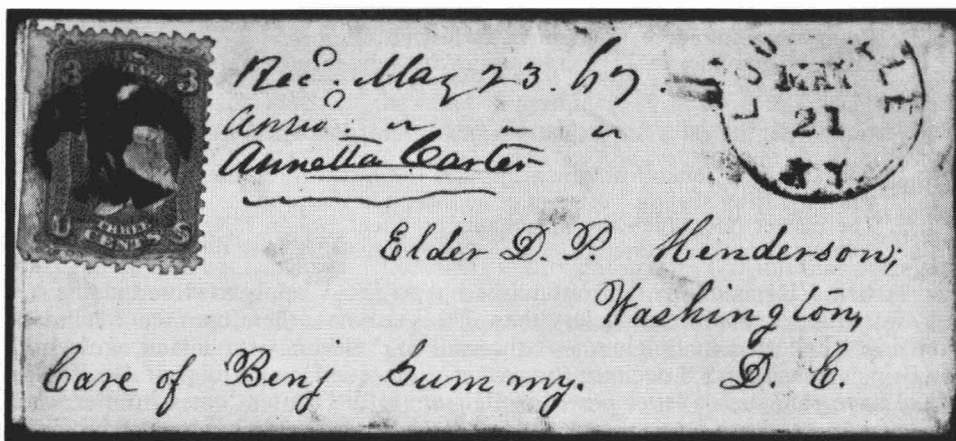 3 3
U THREE S
CENTS
Recd. May 23. 67.
Ansd " " "
Annetta Carter
MAY
21
KY
Elder D. P. Henderson,
Washington,
Care of Benj Summy. D. C.